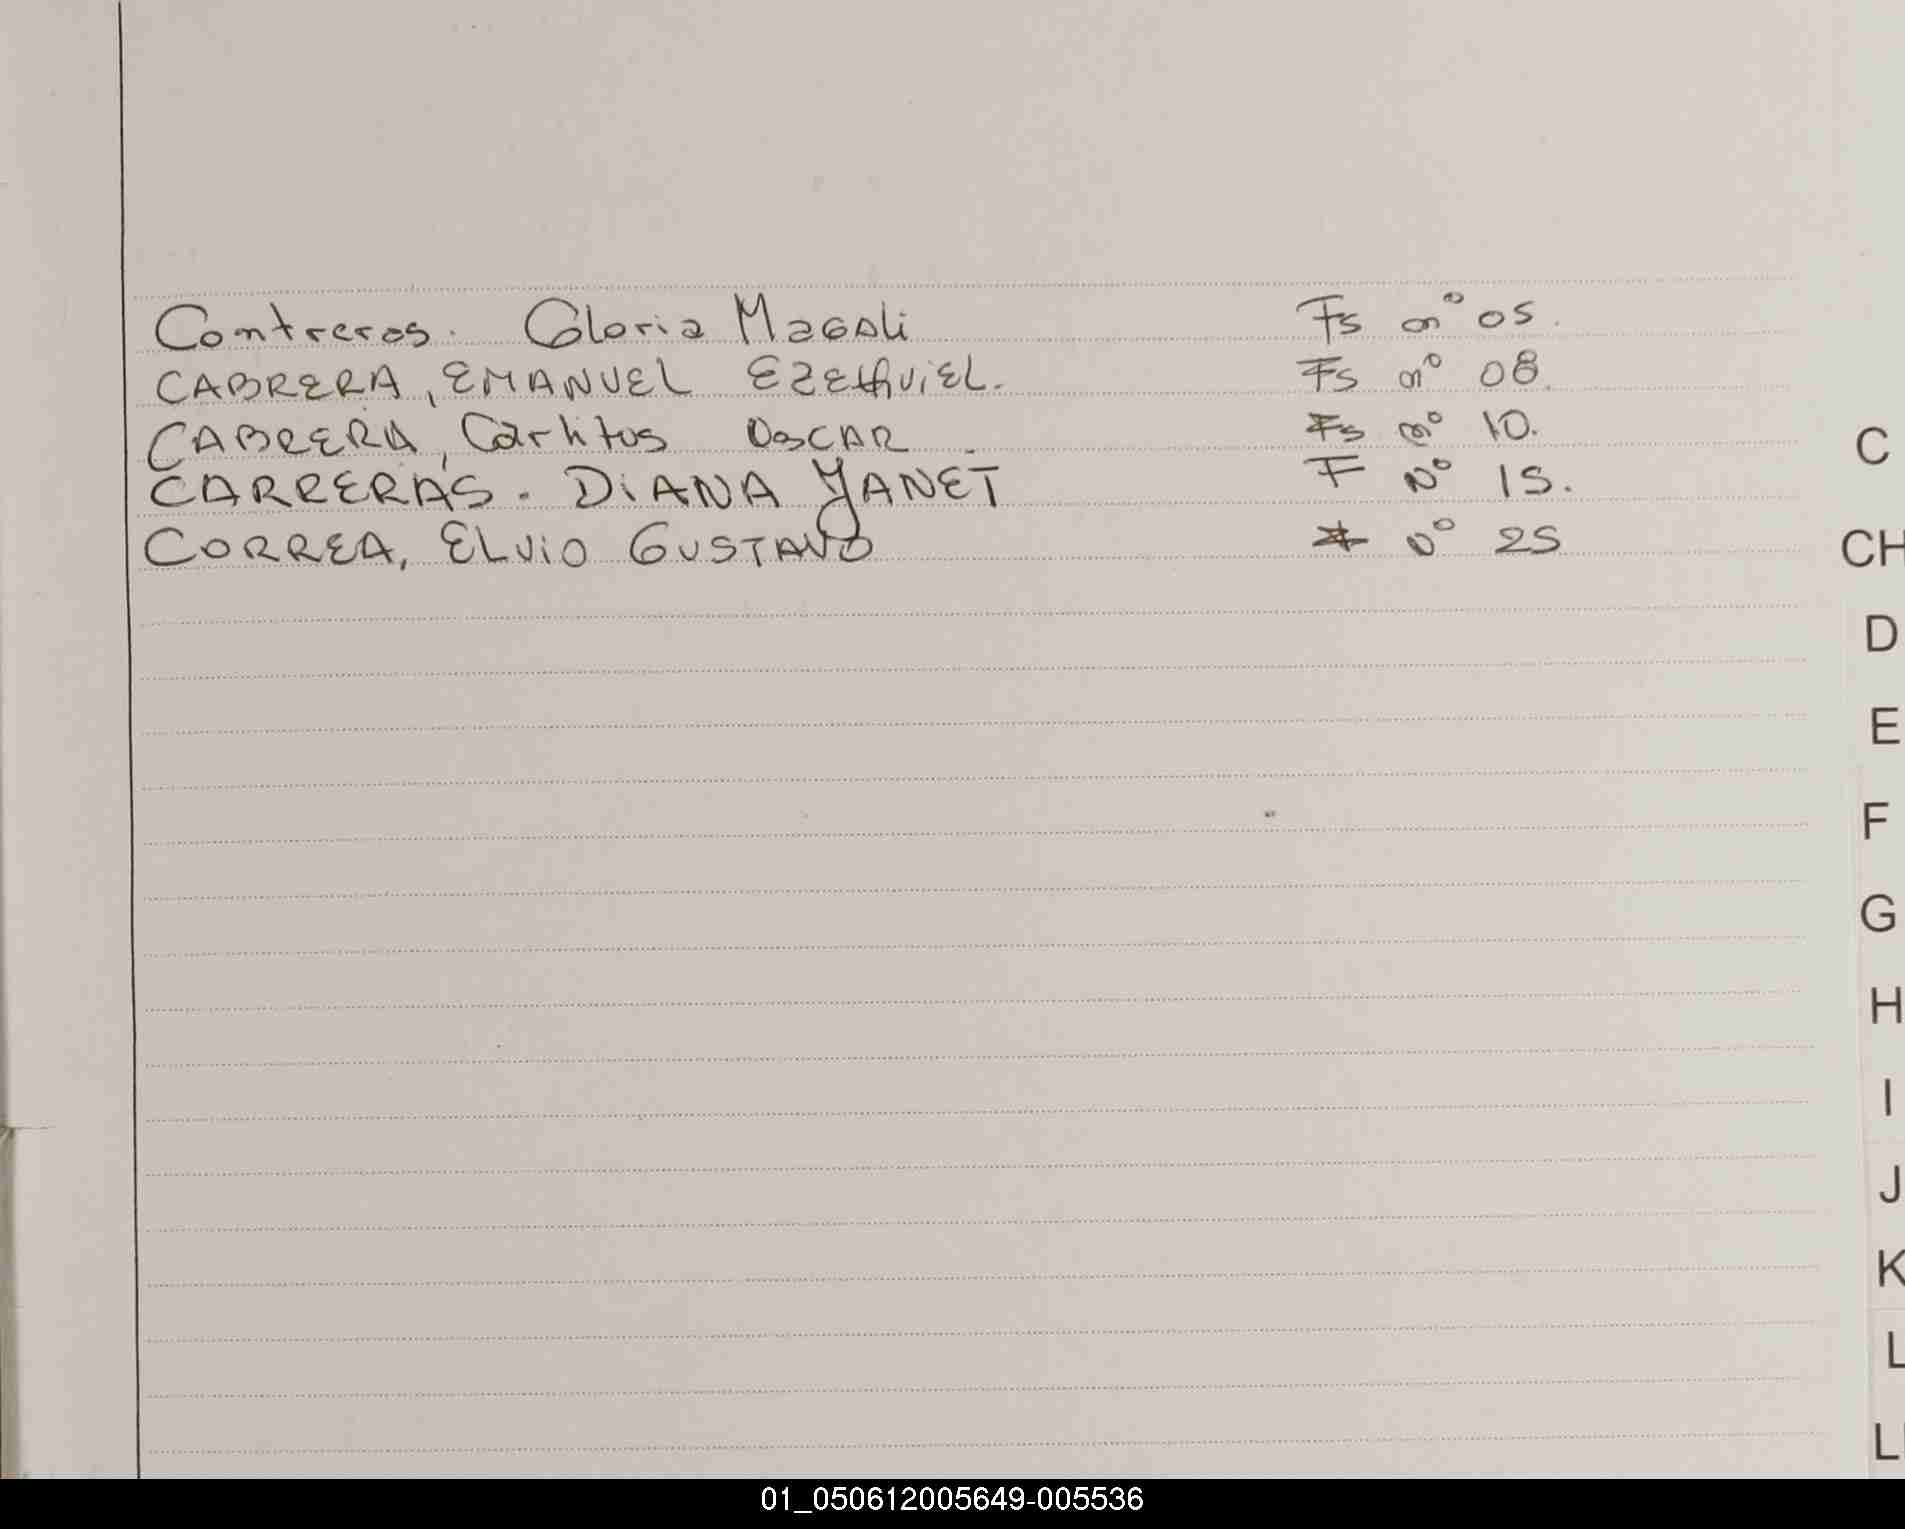 Contreras. Gloria Magali Fs nº 05.
CABRERA, EMANUEL EZEQUIEL. Fs nº 08.
CABRERA, Carlitos OSCAR Fs nº 10.
CARRERAS. DIANA YANET F Nº 15.
CORREA, ELVIO GUSTAVO Nº 25
C
CH
D
E
F
G
H
I
J
K
L
01_050612005649-005536